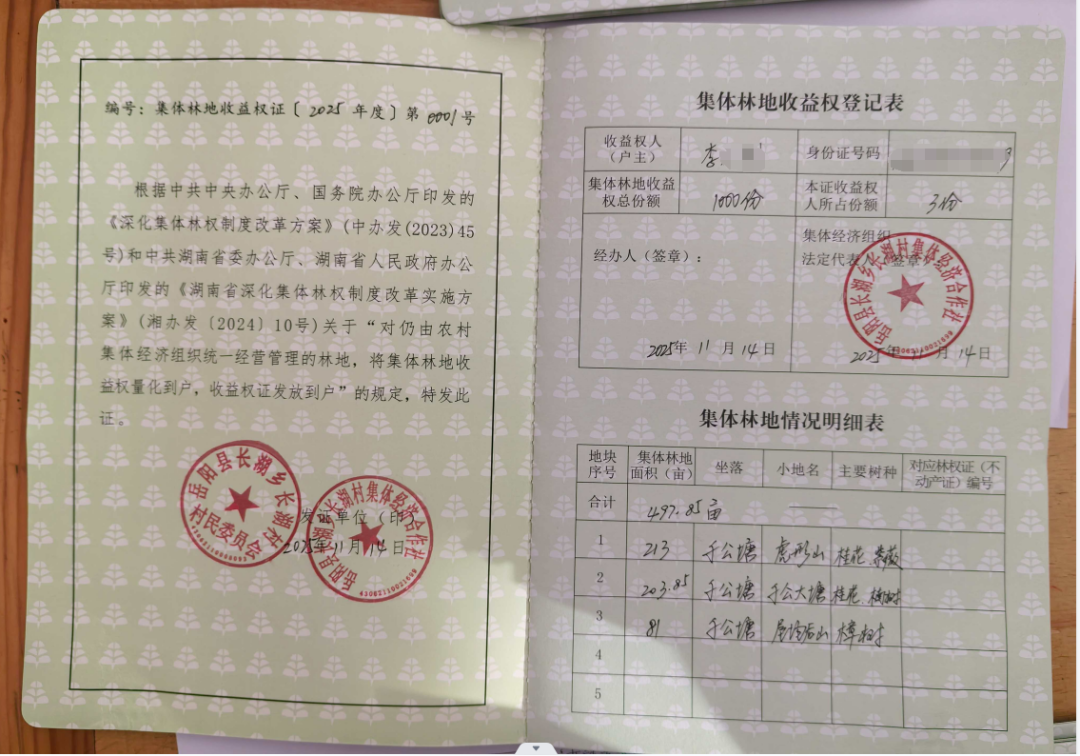 编号：集体林地收益权证〔2025 年度〕第 0001 号
根据中共中央办公厅、国务院办公厅印发的
《深化集体林权制度改革方案》(中办发(2023)45
号)和中共湖南省委办公厅、湖南省人民政府办公
厅印发的《湖南省深化集体林权制度改革实施方
案》(湘办发〔2024〕10号)关于“对仍由农村
集体经济组织统一经营管理的林地，将集体林地收
益权量化到户，收益权证发放到户”的规定，特发此
证。
岳阳县长湖乡长湖村
村民委员会
长湖村集体经济合作社
发证单位（印）
2025年11月14日
集体林地收益权登记表
收益权人（户主） 李 身份证号码 3
集体林地收益权总份额 1000份 本证收益权人所占份额 3份
经办人（签章）： 集体经济组织
法定代表人（签章）
岳阳县长湖乡长湖村集体经济合作社
2025年 11 月 14日 2025年 11 月 14日
集体林地情况明细表
地块序号 集体林地面积（亩） 坐落 小地名 主要树种 对应林权证（不动产证）编号
合计 497.85亩
1 213 于公塘 虎形山 桂花 紫薇
2 203.85 于公塘 于公大塘 桂花
3 81 于公塘 樟树
4
5